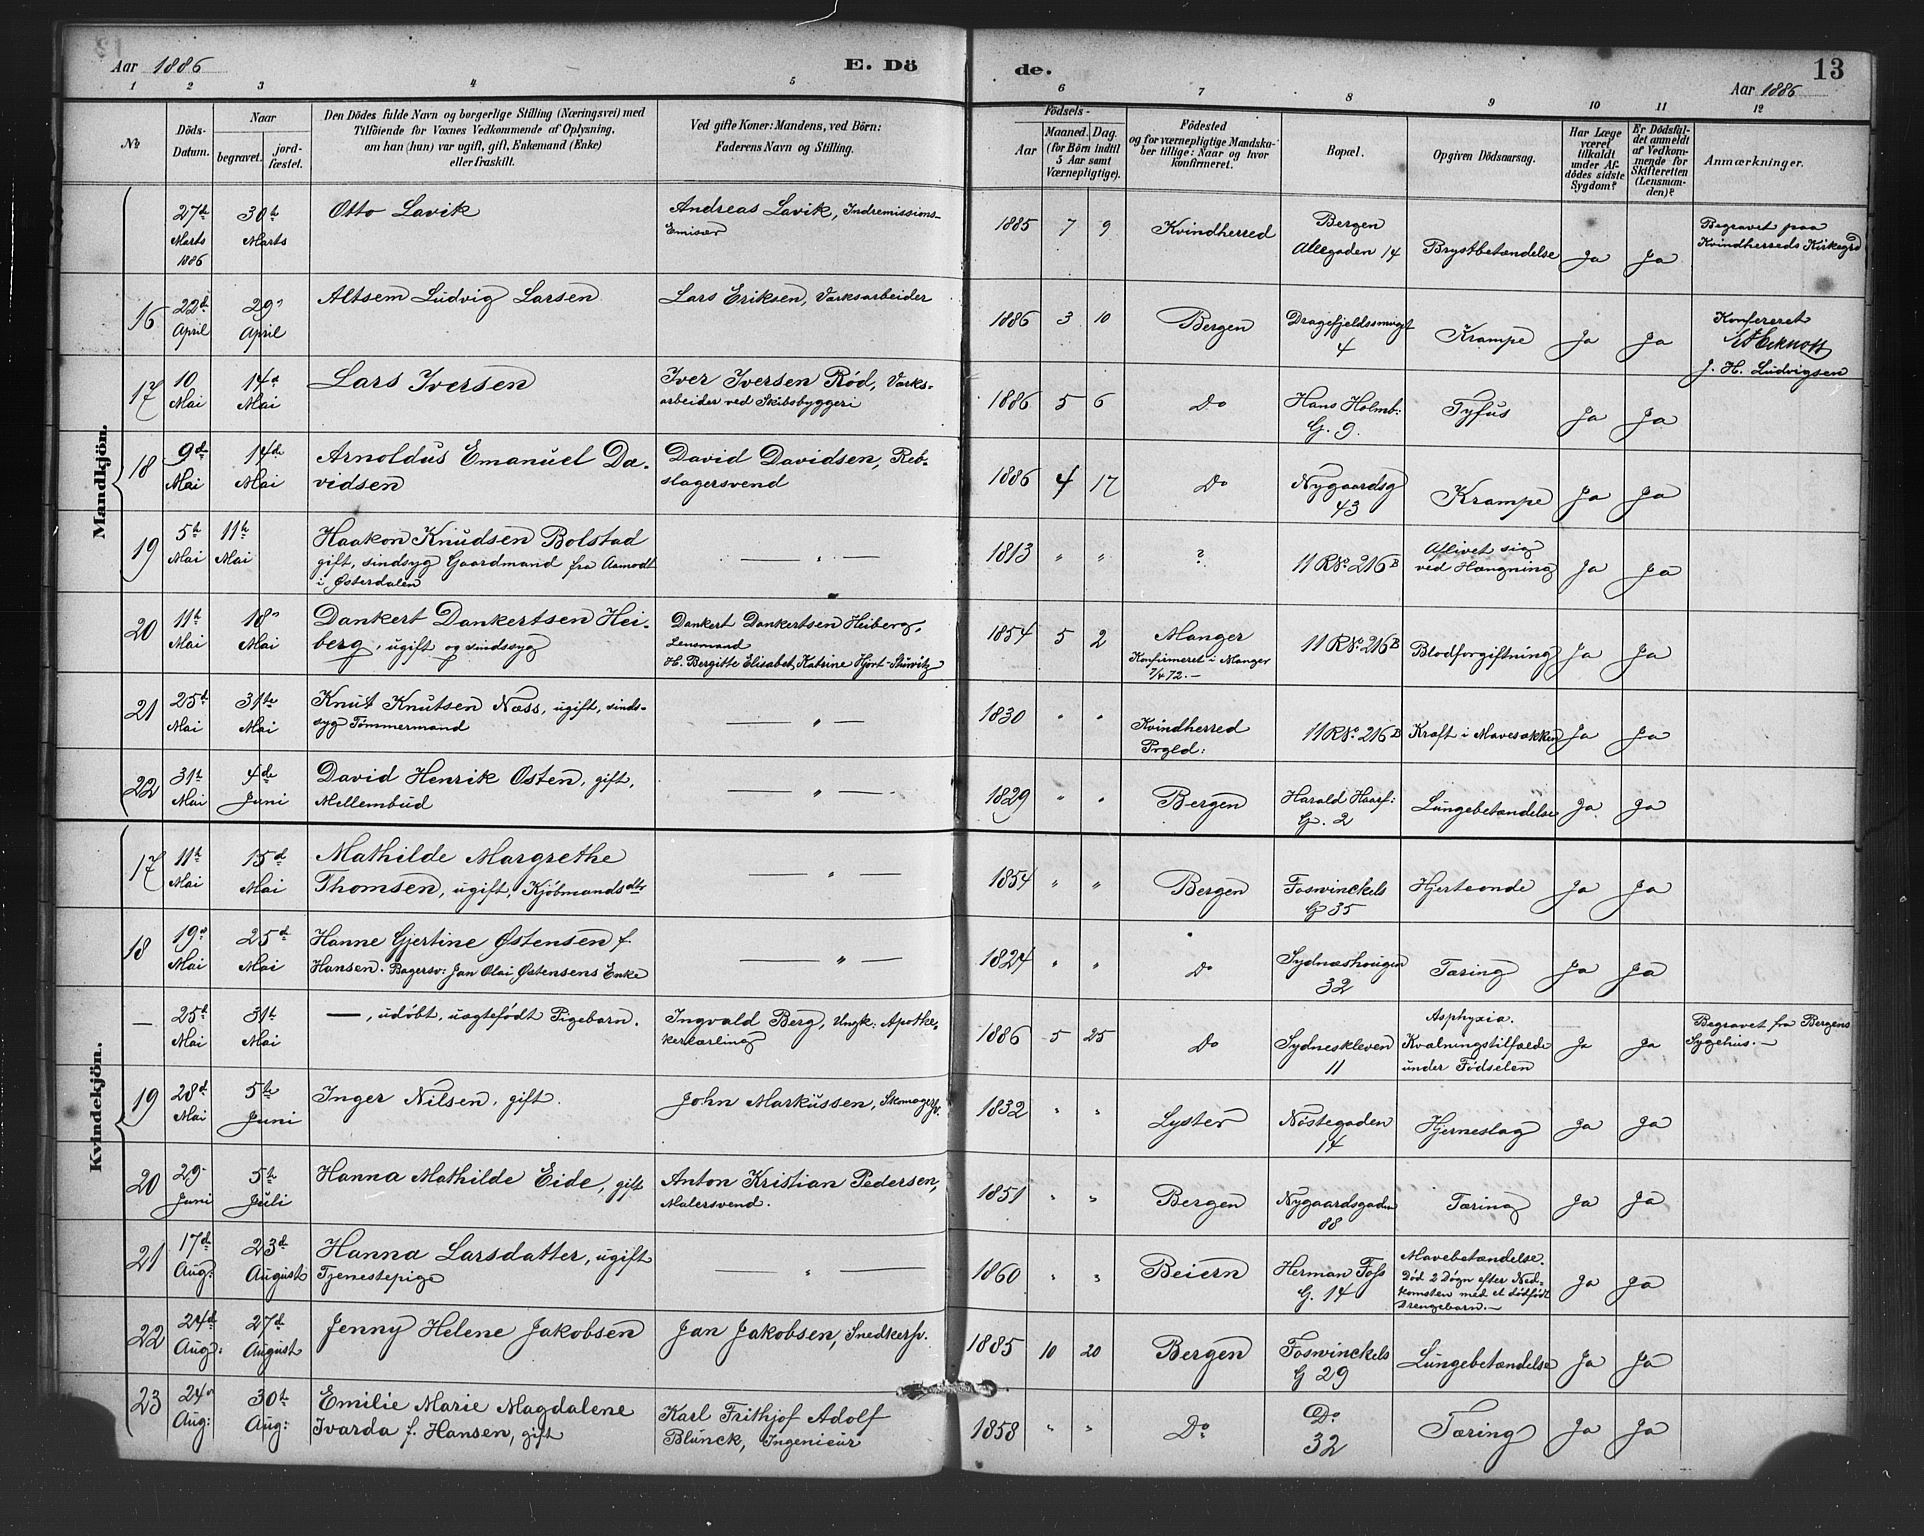 Aar 1886
E. Dö
de.
13
Aar 1886
1 2 3 4 5 6 7 8 9 10 11 12
No
Döds-
Datum.
Naar
begravet.
jord-
fæstet.
Den Dödes fulde Navn og borgerlige Stilling (Næringsvei) med
Tilföiende for Voxnes Vedkommende af Oplysning,
om han (hun) var ugift, gift, Enkemand (Enke)
eller fraskilt.
Ved gifte Koner: Mandens, ved Börn:
Faderens Navn og Stilling.
Födsels-
Aar
Maaned. Dag.
(for Börn indtil
5 Aar samt
Værnepligtige).
Födested
og for værnepligtige Mandska-
ber tillige: Naar og hvor
konfirmeret.
Bopæl.
Opgiven Dödsaarsag.
Har Læge
været
tilkaldt
under Af-
dödes sidste
Sygdom?
Er Dödsfal-
det anmeldt
af Vedkom-
mende for
Skifteretten
(Lensman-
den)?
Anmærkninger.
Mandkjön.
27de
Marts
1886
30te
Marts
Otto Lavik
Andreas Lavik, Indremissions-
Emisær
1885 7 9
Kvindherred
Bergen
Allegaden 14
Brystbetændelse
Ja Ja
Begravet paa
Kvindherreds Kirkegrd
16
22de
April
29
April
Altsem Ludvig Larsen
Lars Eriksen, Værksarbeider
1886 3 10
Bergen
Dragefjeldssmuget
4
Krampe
Ja Ja
Konfereret
J. H. Ludvigsen
17
10
Mai
14
Mai
Lars Iversen
Iver Iversen Rød, Værks-
arbeider ved Skibsbyggeri
1886 5 6
Do
Hans Holmb:
G. 9.
Tyfus
Ja Ja
18
9de
Mai
14de
Mai
Arnoldus Emanuel Da-
vidsen
David Davidsen, Reb-
slagersvend
1886 4 17
Do
Nygaardsg
43
Krampe
Ja Ja
19
5te
Mai
11te
Mai
Haakon Knudsen Bolstad
gift, sindsyg Gaardmand fra Aamodt
i Østerdalen
— " —
1813 " "
?
11 R No 216 B
Aflivet sig
ved Hængning
Ja Ja
20
11te
Mai
18
Mai
Dankert Dankertsen Hei-
berg, ugift og sindssyg
Dankert Dankertsen Heiberg,
Lensmand
H. Bergitte Elisabet, Katrine Hjort
1854 5 2
Manger
Konfirmeret i Manger
7/4 72.-
11 R No 216 B
Blodforgiftning
Ja Ja
21
25de
Mai
31te
Mai
Knut Knutsen Næss, ugift, sinds-
syg Tømmermand
— " —
1830 " "
Kvindherred
Prgld:
11 R No 216 B
Kræft i Mavesækken
Ja Ja
22
31te
Mai
4de
Juni
David Henrik Osten, gift,
Mellembud
— " —
1829 " "
Bergen
Harald Haarf:
G. 2
Lungebetændelse
Ja Ja
Kvindekjön.
17
11te
Mai
15de
Mai
Mathilde Margrethe
Thomsen, ugift, Kjøbmandsdtr
— " —
1854 " "
Bergen
Foswinckels
G 35
Hjerteonde
Ja Ja
18
19de
Mai
25de
Mai
Hanne Gjertine Østensen f.
Hansen. Bagersv: Jan Olai Østensens Enke
— " —
1824 " "
Do
Sydnæshougen
32
Tæring
Ja Ja
—
25de
Mai
31te
Mai
—, udøbt, uægtefødt Pigebarn.
Ingvald Berg, Ungk: Apothe-
kerlærling
1886 5 25
Do
Sydneskleven
11
Asphyxia.
Kvælningstilfælde
under Fødselen
Ja Ja
Begravet fra Bergens
Sygehus.-
19
28de
Mai
5te
Juni
Inger Nilsen, gift.
John Markussen, Skomagersv.
1832 " "
Lyster
Nøstegaden
14
Hjerneslag
Ja Ja
20
29
Juni
5te
Juli
Hanna Mathilde Eide, gift
Anton Kristian Pedersen,
Malersvend.
1851 " "
Bergen
Nygaardsgaden
88
Tæring
Ja Ja
21
17de
Aug:
23de
August
Hanna Larsdatter, ugift
Tjenestepige
— " —
1860 " "
Beiern
Herman Foss
G. 14
Mavebetændelse.
Død 2 Døgn efter Ned-
komsten med et dødfødt
Drengebarn.-
Ja Ja
22
24de
Aug:
27de
August
Jenny Helene Jakobsen
Jan Jakobsen, Snedkersv.
1885 10 20
Bergen
Foswinckels
G 29
Lungebetændelse
Ja Ja
23
24
Aug:
30te
Aug:
Emilie Marie Magdalene
Ivarda f. Hansen, gift
Karl Frithjof Adolf
Blunck, Ingenieur
1858 " "
Do
Do
32
Tæring
Ja Ja